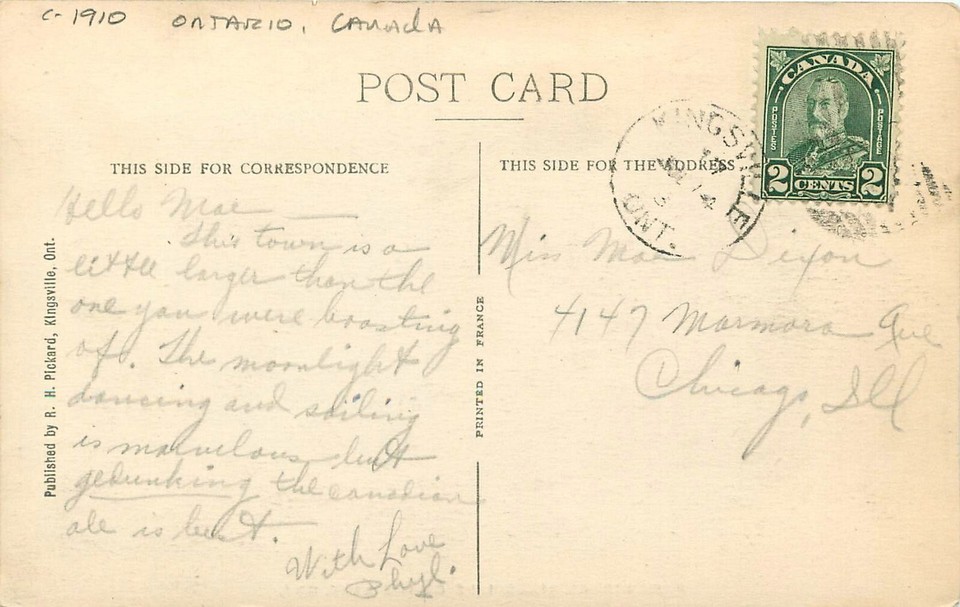 C-1910 ONTARIO, CANADA
POST CARD
THIS SIDE FOR CORRESPONDENCE
Hello Mae —
This town is a
little larger than the
one you were boasting
of. The moonlight
dancing and sailing
is marvelous but
gedunking the canadian
ale is best.
With Love
Phyl.
Published by R. H. Pickard, Kingsville, Ont.
PRINTED IN FRANCE
THIS SIDE FOR THE ADDRESS
KINGSVILLE
ONT.
CANADA
POSTES
POSTAGE
2 CENTS 2
Miss Mae Dixon
4147 Marmora Ave
Chicago, Ill